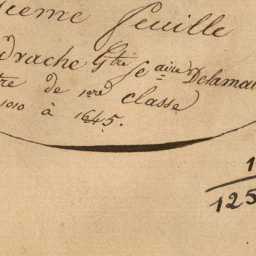 ième feuille
Gtre Secaire Delamar
tre de 1ere classe
1010 à 1645.
1
125